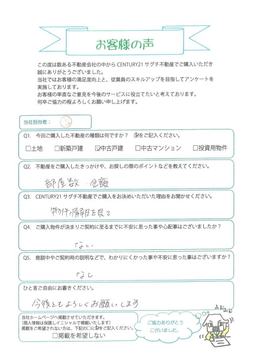 お客様の声
この度は数ある不動産会社の中から CENTURY21 サグチ不動産でご購入いただき
誠にありがとうございました。
当社ではお客様の満足度向上と、従業員のスキルアップを目指してアンケートを
実施しております。
お客様の率直なご意見を今後のサービスに役立てたいと考えております。
何卒ご協力の程よろしくお願い申し上げます。
当社担当者:
Q1. 今回ご購入した不動産の種類は何ですか? ✓をご記入ください。
□土地 □新築戸建 ☑中古戸建 □中古マンション □投資用物件
Q2. 不動産をご購入したきっかけや、お探しの際のポイントなどを教えてください。
部屋数 金額
Q3. CENTURY21 サグチ不動産でご購入をお決めいただいた理由をお聞かせください。
物件情報を見て
Q4. ご購入物件が決まりご契約に至るまでに不安に思った事や心配事はございましたか?
ない
Q5. 商談中やご契約時の説明などで、わかりにくかった事や不安に思った事はございますか?
なし
ひと言ご自由にお書きください。
今後ともよろしくお願いします
当社ホームページへ掲載させていただきます。
(個人情報は保護しイニシャルで掲載いたします)
□掲載を希望しない
ご協力ありがとう
ございました。